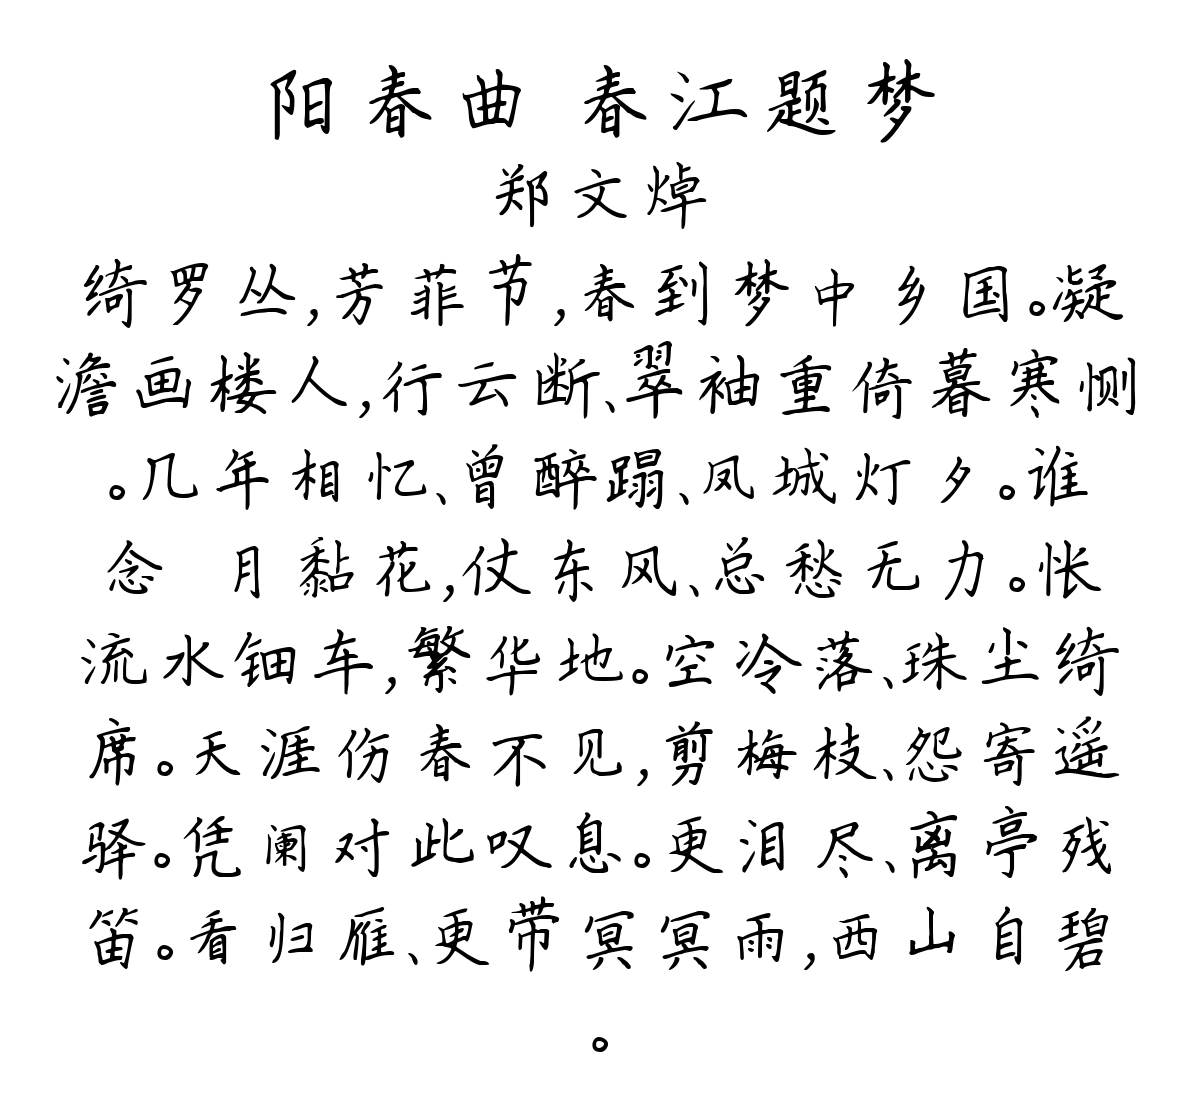 阳春曲 春江题梦
郑文焯
绮罗丛,芳菲节,春到梦中乡国。凝
澹画楼人,行云断、翠袖重倚暮寒恻
。几年相忆、曾醉蹋、凤城灯夕。谁
念 月黏花,仗东风、总愁无力。怅
流水钿车,繁华地。空冷落、珠尘绮
席。天涯伤春不见,剪梅枝、怨寄遥
驿。凭阑对此叹息。更泪尽、离亭残
笛。看归雁、更带冥冥雨,西山自碧
。